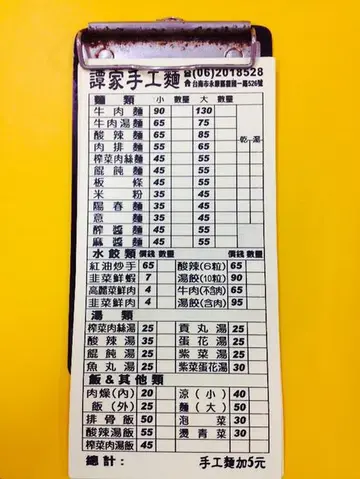 譚家手工麵 ☎(06)2018528
台南市永康區復國一路526號
麵類 小 數量 大 數量
牛肉麵 90 130
牛肉湯麵 65 75
酸辣麵 65 85
肉排麵 55 65 乾 湯
榨菜肉絲麵 45 55
餛飩麵 45 55
板條 45 55
米粉 35 45
陽春麵 35 45
意麵 35 45
醡醬麵 45 55
麻醬麵 45 55
水餃類 價錢 數量 價錢 數量
紅油炒手 65 酸辣(6粒) 65
韭菜鮮蝦 7 湯餃(10粒) 90
高麗菜鮮肉 4 牛肉(不含肉) 65
韭菜鮮肉 4 湯餃(含肉) 95
湯類
榨菜肉絲湯 25 貢丸湯 25
酸辣湯 35 蛋花湯 25
餛飩湯 25 紫菜湯 25
魚丸湯 25 紫菜蛋花湯 30
飯&其他類
肉燥(內) 20 涼(小) 40
飯(外) 25 麵(大) 50
排骨飯 50 泡菜 30
酸辣湯飯 55 燙青菜 30
榨菜肉絲飯 45
總計: 手工麵加5元